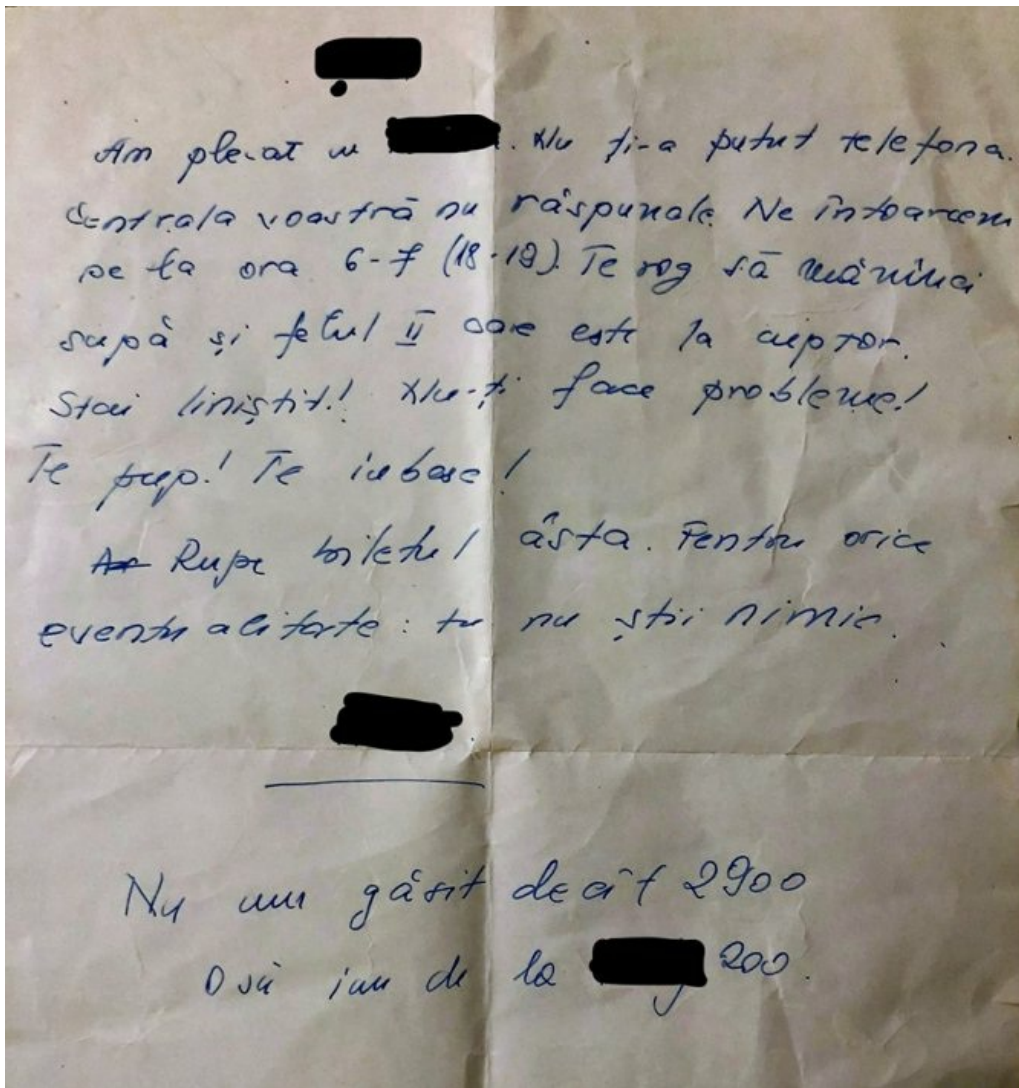 Am plecat cu . Nu ți-a putut telefona.
Centrala voastră nu răspunde. Ne întoarcem
pe la ora 6-7 (18-19). Te rog să mănînci
supă și felul II care este la cuptor.
Stai liniștit! Nu-ți face probleme!
Te pup! Te iubesc!
Rupe biletul ăsta. Pentru orice
eventualitate: tu nu știi nimic.
Nu am găsit decît 2900
O să iau de la 200.